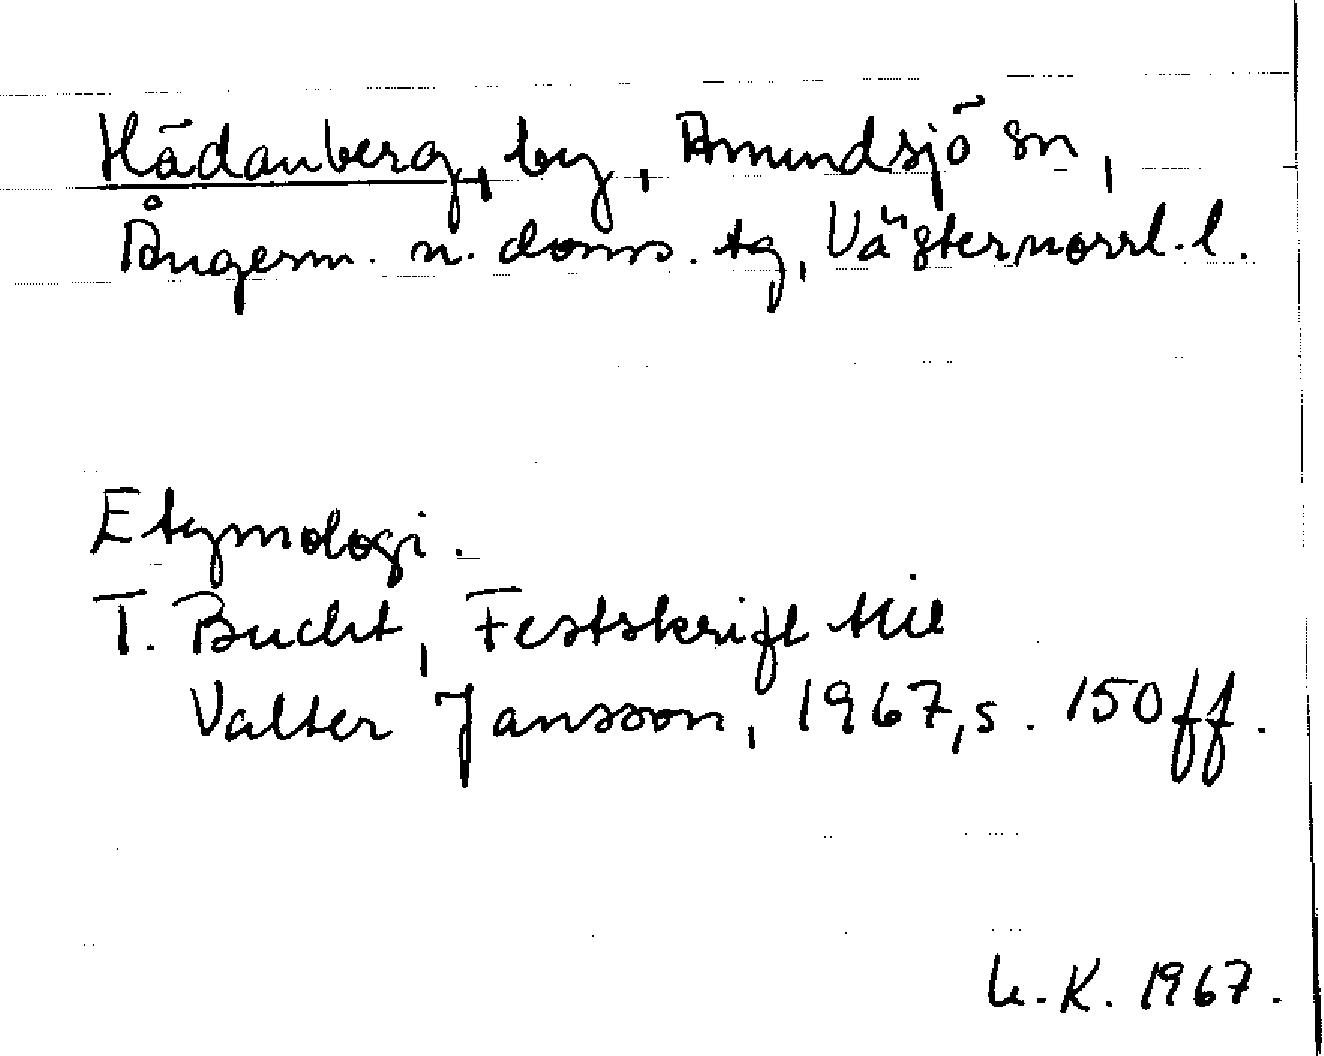 Hädanberg, by, Anundsjö sn,
Ångerm. n. doms. tg, Västernorrl. l.
Etymologi.
T. Bucht, Festskrift till
Valter Jansson, 1967, s. 150 ff.
K. 1967.